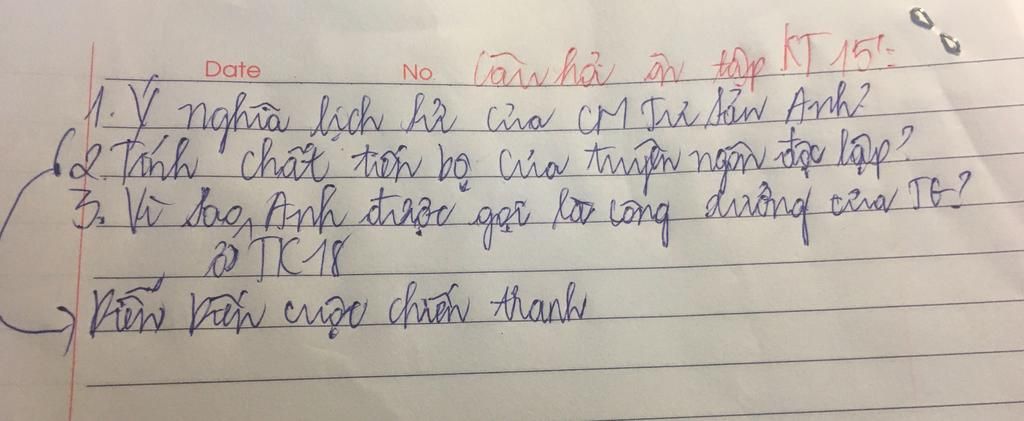 Date No. Câu hỏi ôn tập KT 15':
1. Ý nghĩa lịch sử của CM Tư sản Anh?
2. Tính chất tiến bộ của tuyên ngôn độc lập?
3. Vì sao, Anh được gọi là công xưởng của TG?
ở TK 18
Diễn biến cuộc chiến thanh